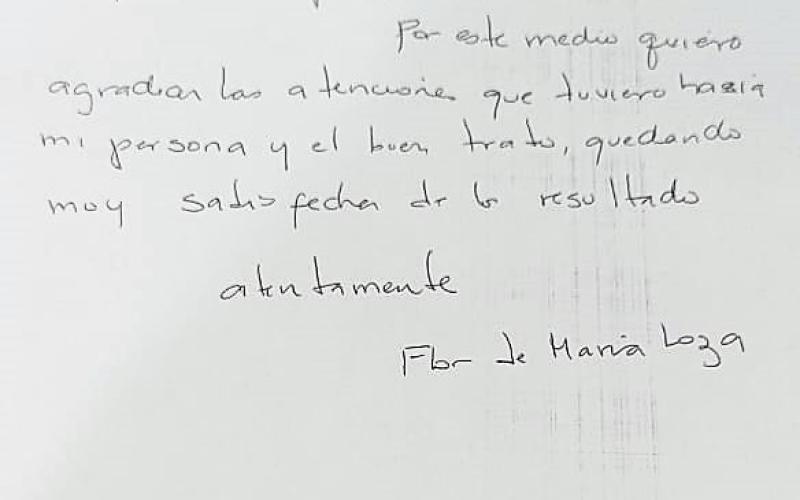 Por este medio quiero
agradecer las atenciones que tuviero hacia
mi persona y el buen trato, quedando
muy satisfecha de lo resultado
atentamente
Flor de Maria Loza